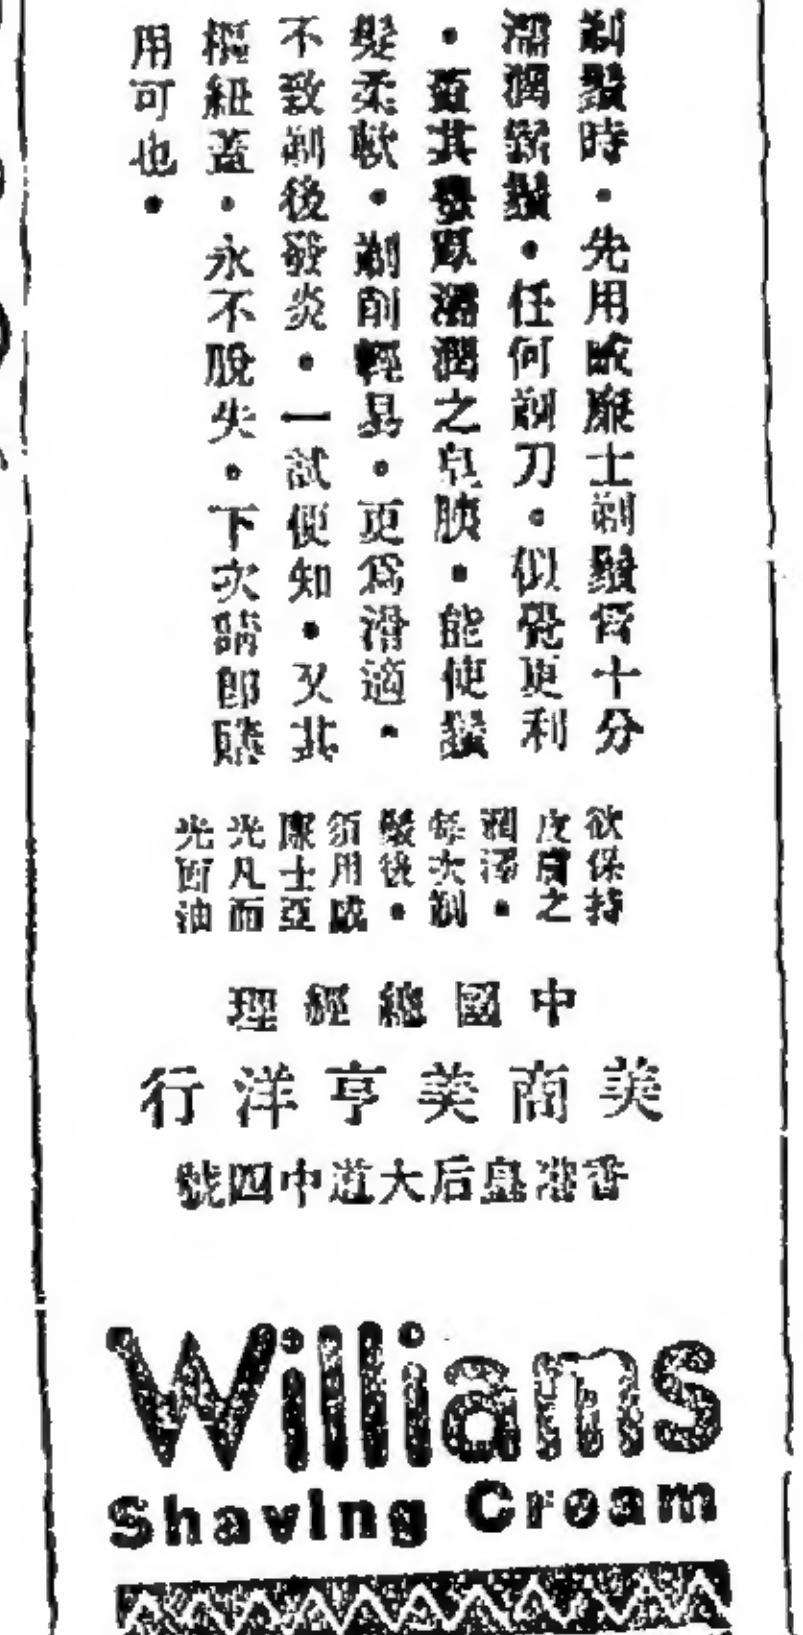 剃鬚時·先用威廉士剃鬚膏十分
濕潤·任何剃刀·似覺更利
·其濕潤之皂胰·能使鬚
髮柔軟·剃削輕易·更為滑適·
不致剃後發炎·一試便知·又其
樞紐蓋·永不脫失·下次請即購
用可也·
欲保持
皮膚之
潤澤·
每次剃
鬚後·
須用威
廉士亞
光凡而
光面油
中國總經理
美商美亨洋行
香港皇后大道中四號
Williams
Shaving Cream